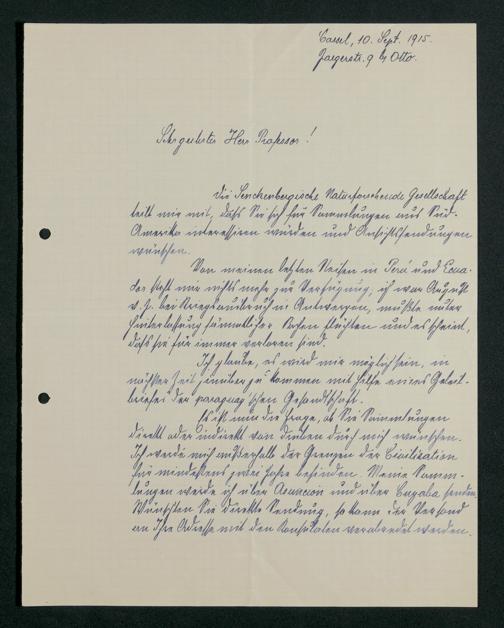 Cassel, 10. Sept. 1915.
Jaegerstr. 9 b/ Otto.
Sehr geehrter Herr Professor!
Die Senckenbergische Naturforschende Gesellschaft
teilt mir mit, daß Sie sich für Sammlungen aus Süd-
Amerika interessieren würden und Ansichtssendungen
wünschen.
Von meinen letzten Reisen in Perú und Ecua-
dor steht mir nichts mehr zur Verfügung, ich war August
v. J. bei Kriegsausbruch in Antwerpen, mußte unter
Hinterlassung sämmtlicher Sachen flüchten und es scheint,
daß sie für immer verloren sind.
Ich glaube, es wird mir möglich sein, in
nächster Zeit hinüber zu kommen mit Hilfe eines Geleit-
briefes der paraguayschen Gesandtschaft.
Es ist nun die Frage, ob Sie Sammlungen
direkt oder indirekt von drüben durch mich wünschen.
Ich werde mich außerhalb der Grenzen der Civilisation
für mindestens zwei Jahre befinden. Meine Samm-
lungen werde ich über Asuncion und über Cuyaba senden.
Wünschen Sie direkte Sendung, so kann der Versand
an Ihre Adresse mit den Konsulaten verabredet werden.